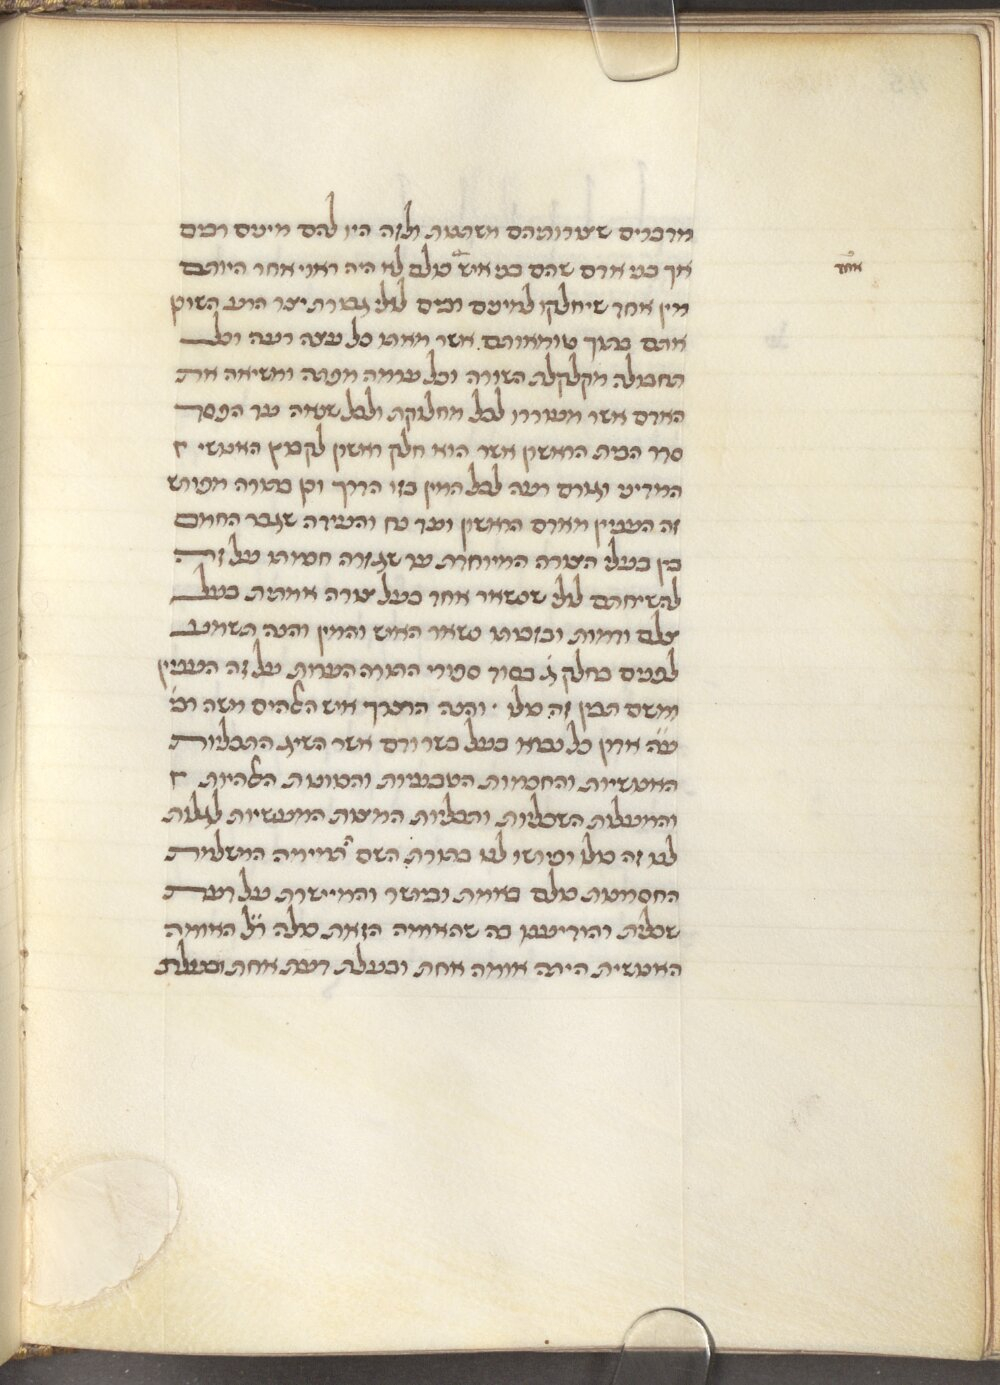 מדברים שצורותיהם משתנות ולזה היו להם מינים רבים
אך בני אדם שהם בני איש כולם לא היה ראוי אחר היותם
אחד
מין אחד שיחלקו למינים רבים לולי גבורת יצר הרע השוכן
אתם בתוך טומאותם אשר מאתו כל עצה רעה וכל
תחבולה מקלקלת השורה וכל ערמה מפתה ומשיאה את
האדם אשר מעוררו לכל מחלוקת ולכל שנאה עד הפסד
סדר הבית הראשון אשר הוא חלק ראשון לקבוץ האנושי
המדיני וגורם רעה לכל המין בזו הדרך וכן בתורה מפורש
זה הענין מאדם הראשון ועד נח והעירה שגבר החמס
בין בעלי הצורה המיוחדת עד שגזרה חכמתו על זה
להשחיתם לולי שנשאר אחד בעל צורה אמתית בעל
צלם ודמות ובזכותו נשאר האיש והמין והנה תשמע
לפנים בחלק ג' בסוד ספורי התורה העדות על זה הענין
ומשם תבין זה כולו · והנה הוצרך איש האלהים משה רבי'
ע"ה אדון כל נברא בעל בשר ודם אשר השיג התכליות
האנושיות והחכמות הטבעיות והכוונות האלהיות
והמעלות השכליות ותכליות המצות המעשיות לגלות
לנו זה כולו ופירושו לנו בתורת השם תמימה המשלמת
החסרונות כולם באמת וביושר והמיישרת כל דעת
שכלית והודיענו בה שהאומה הזאת כולה ר"ל האומה
האנושית היתה אומה אחת ובעלת דעת אחת ובעלת